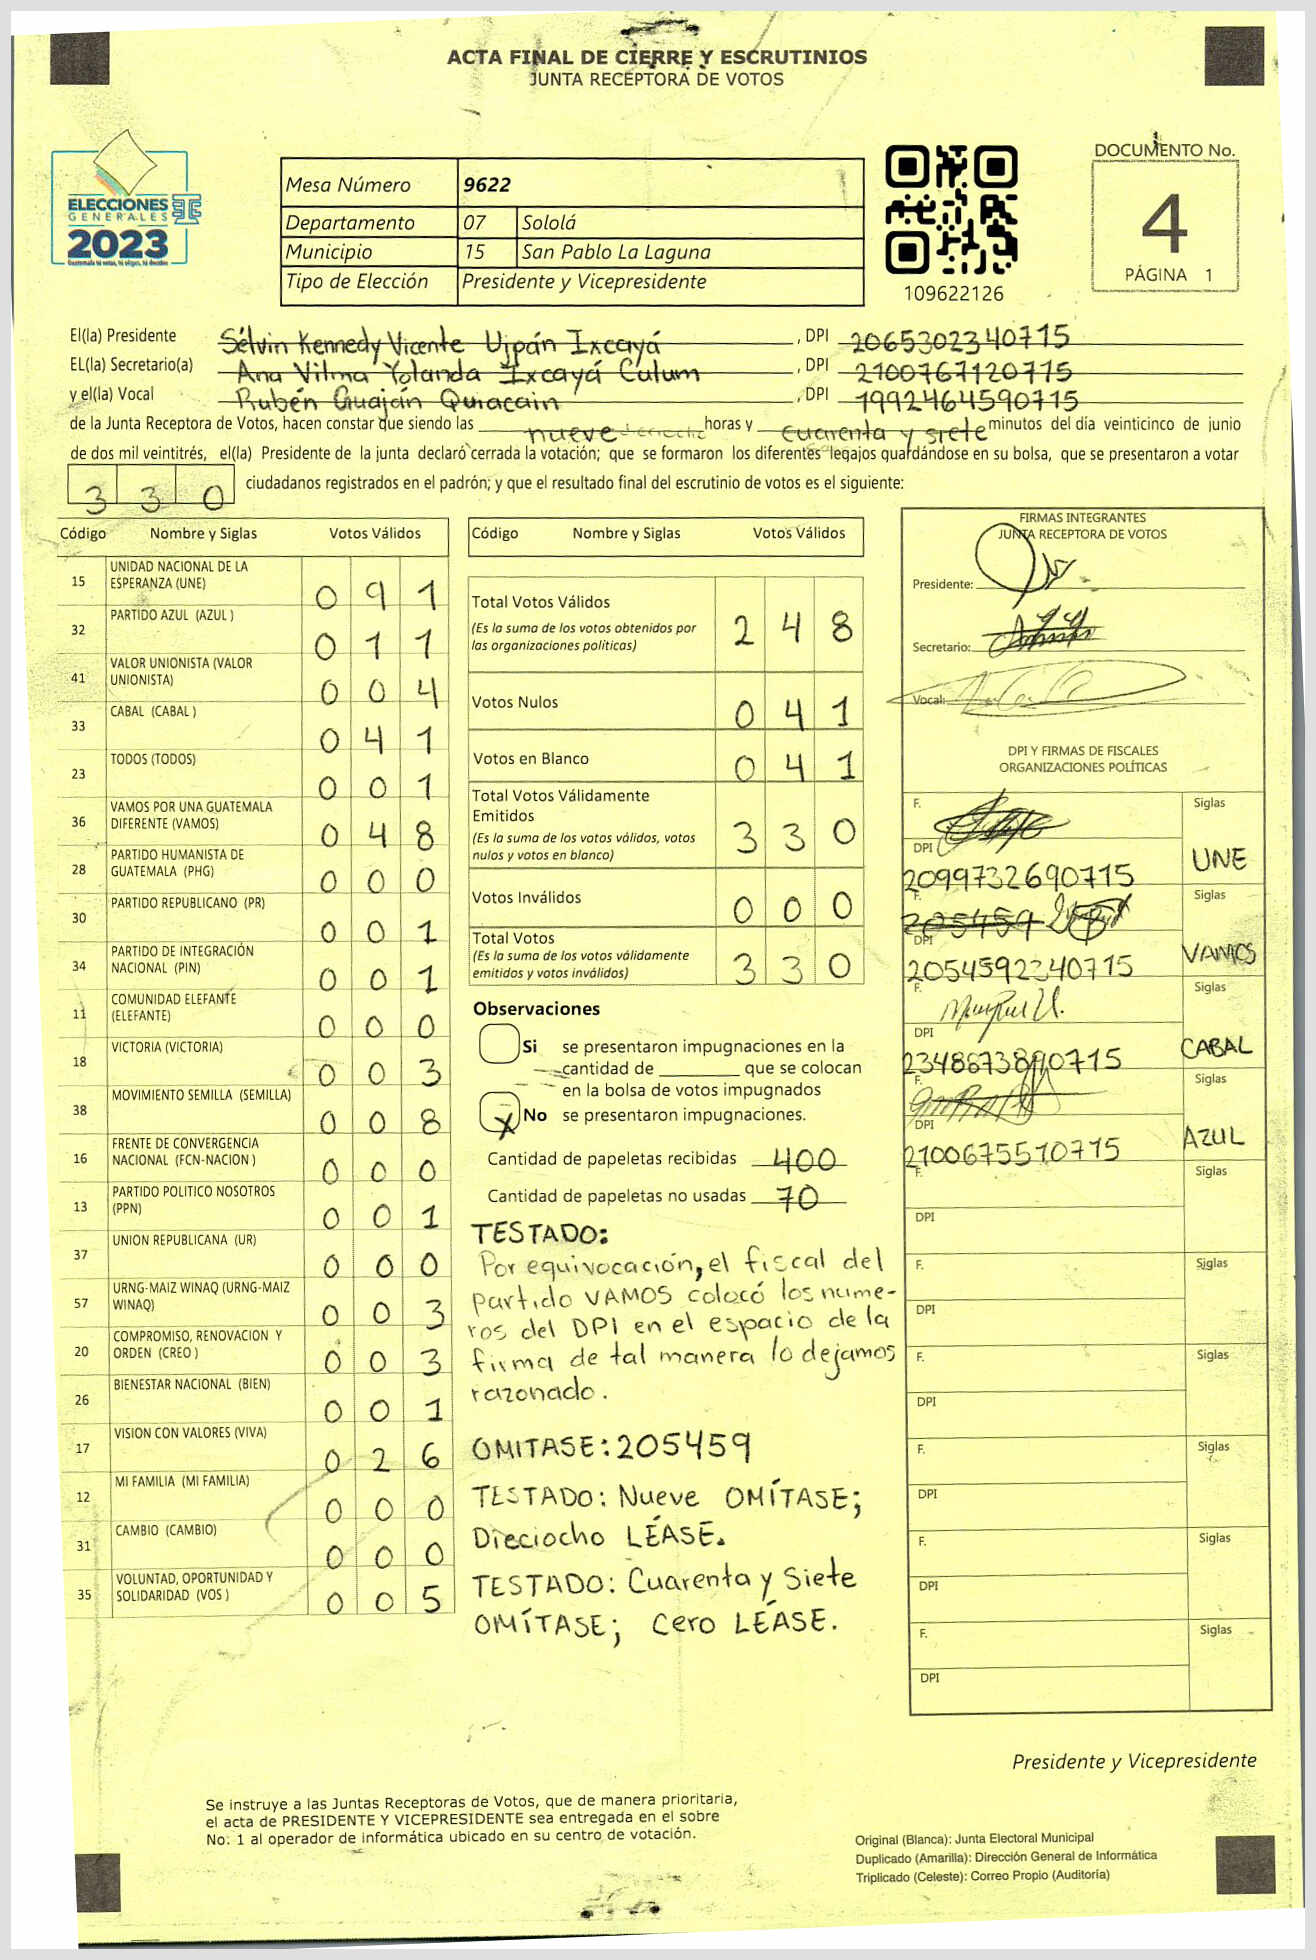 ACTA FINAL DE CIERRE Y ESCRUTINIOS
JUNTA RECEPTORA DE VOTOS
ELECCIONES
GENERALES
2023
Guatemala tú votas, tú eliges, tú decides
Mesa Número 9622
Departamento 07 Sololá
Municipio 15 San Pablo La Laguna
Tipo de Elección Presidente y Vicepresidente
109622126
DOCUMENTO No.
4
PÁGINA 1
El(la) Presidente Sélvin Kennedy Vicente Ujpán Ixcayá, DPI 2065302340715
EL(la) Secretario(a) Ana Vilma Yolanda Ixcayá Culum, DPI 2100767120715
y el(la) Vocal Rubén Guaján Quiacain, DPI 1992464590715
de la Junta Receptora de Votos, hacen constar que siendo las nueve horas y cuarenta y siete minutos del día veinticinco de junio
de dos mil veintitrés, el(la) Presidente de la junta declaró cerrada la votación; que se formaron los diferentes legajos guardándose en su bolsa, que se presentaron a votar
330 ciudadanos registrados en el padrón; y que el resultado final del escrutinio de votos es el siguiente:
Código Nombre y Siglas Votos Válidos
15 UNIDAD NACIONAL DE LA ESPERANZA (UNE) 091
32 PARTIDO AZUL (AZUL ) 011
41 VALOR UNIONISTA (VALOR UNIONISTA) 004
33 CABAL (CABAL ) 041
23 TODOS (TODOS) 001
36 VAMOS POR UNA GUATEMALA DIFERENTE (VAMOS) 048
28 PARTIDO HUMANISTA DE GUATEMALA (PHG) 000
30 PARTIDO REPUBLICANO (PR) 001
34 PARTIDO DE INTEGRACIÓN NACIONAL (PIN) 001
11 COMUNIDAD ELEFANTE (ELEFANTE) 000
18 VICTORIA (VICTORIA) 003
38 MOVIMIENTO SEMILLA (SEMILLA) 008
16 FRENTE DE CONVERGENCIA NACIONAL (FCN-NACION ) 000
13 PARTIDO POLITICO NOSOTROS (PPN) 001
37 UNION REPUBLICANA (UR) 000
57 URNG-MAIZ WINAQ (URNG-MAIZ WINAQ) 003
20 COMPROMISO, RENOVACION Y ORDEN (CREO ) 003
26 BIENESTAR NACIONAL (BIEN) 001
17 VISION CON VALORES (VIVA) 026
12 MI FAMILIA (MI FAMILIA) 000
31 CAMBIO (CAMBIO) 000
35 VOLUNTAD, OPORTUNIDAD Y SOLIDARIDAD (VOS ) 005
Código Nombre y Siglas Votos Válidos
Total Votos Válidos 248
(Es la suma de los votos obtenidos por
las organizaciones políticas)
Votos Nulos 041
Votos en Blanco 041
Total Votos Válidamente
Emitidos 330
(Es la suma de los votos válidos, votos
nulos y votos en blanco)
Votos Inválidos 000
Total Votos 330
(Es la suma de los votos válidamente
emitidos y votos inválidos)
Observaciones
Si se presentaron impugnaciones en la
cantidad de ________ que se colocan
en la bolsa de votos impugnados
X No se presentaron impugnaciones.
Cantidad de papeletas recibidas 400
Cantidad de papeletas no usadas 70
TESTADO:
Por equivocación, el fiscal del
partido VAMOS colocó los nume-
ros del DPI en el espacio de la
firma de tal manera lo dejamos
razonado.
OMITASE: 205459
TESTADO: Nueve OMÍTASE;
Dieciocho LÉASE.
TESTADO: Cuarenta y Siete
OMÍTASE; Cero LÉASE.
FIRMAS INTEGRANTES
JUNTA RECEPTORA DE VOTOS
Presidente:
Secretario:
Vocal:
DPI Y FIRMAS DE FISCALES
ORGANIZACIONES POLÍTICAS
F. Siglas
DPI 2099732690715 UNE
F. 205459 Siglas
DPI 2054592340715 VAMOS
F. Siglas
DPI 2348673890715 CABAL
F. Siglas
DPI 2100675510715 AZUL
F. Siglas
DPI
F. Siglas
DPI
F. Siglas
DPI
F. Siglas
DPI
F. Siglas
DPI
F. Siglas
DPI
Presidente y Vicepresidente
Se instruye a las Juntas Receptoras de Votos, que de manera prioritaria,
el acta de PRESIDENTE Y VICEPRESIDENTE sea entregada en el sobre
No. 1 al operador de informática ubicado en su centro de votación.
Original (Blanca): Junta Electoral Municipal
Duplicado (Amarilla): Dirección General de Informática
Triplicado (Celeste): Correo Propio (Auditoría)